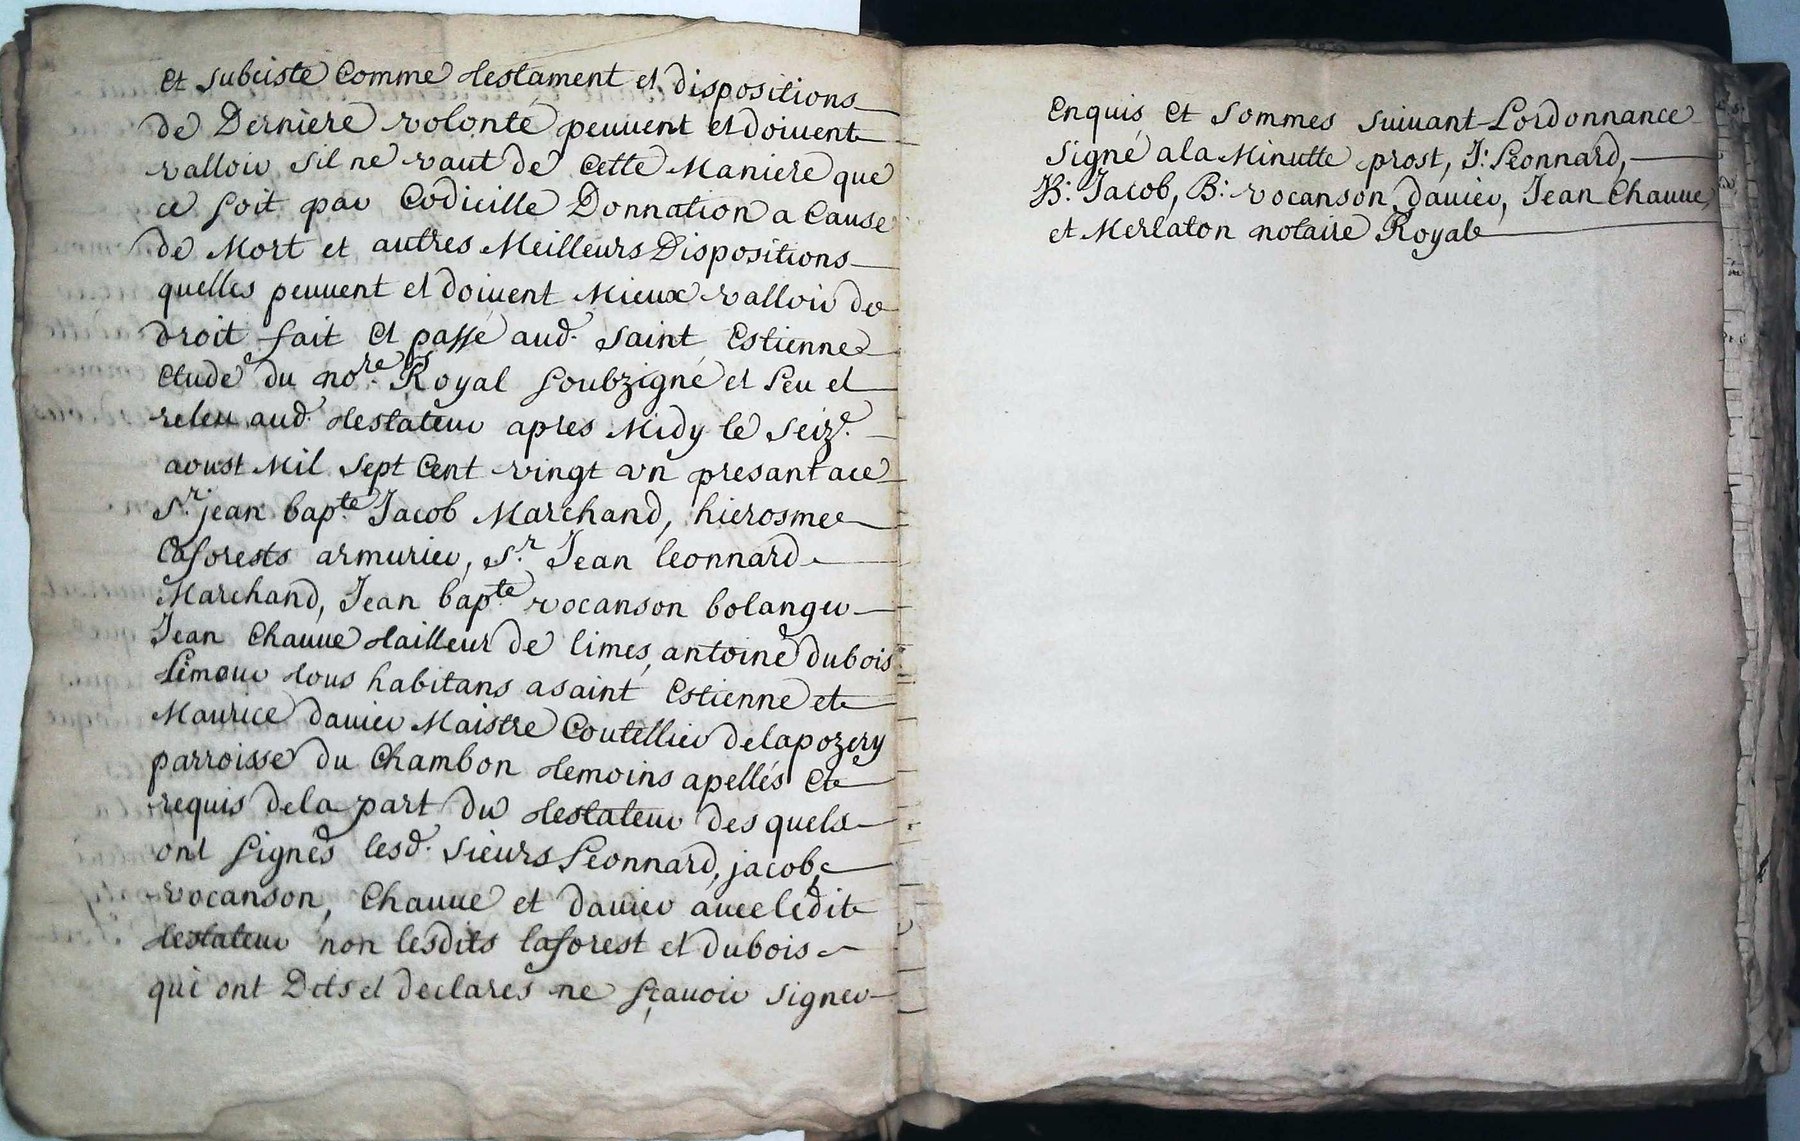 et subciste comme testament et dispositions
de Derniere volonté peuvent et doivent
valloir sil ne vaut de cette Maniere que
ce soit par Codicille Donnation a Cause
de Mort et autres Meilleurs Dispositions
quelles peuvent et doivent Mieux valloir de
droit fait et passé aud. saint Estienne
etude du no.re Royal soubzigné et leu et
releu aud. testateur apres Midy le seize.
aoust Mil sept cent vingt un presant ace
S.r jean bap.te Jacob Marchand, hierosme
Laforests armurier, S.r Jean leonnard
Marchand, Jean bap.te vocanson bolanger
Jean Chauve tailleur de limes, antoine dubois
limeur tous habitans a saint Estienne et
Maurice davier Maistre Coutellier de lapozery
parroisse du Chambon temoins apellés et
requis dela part du testateur des quels
ont signés lesd. sieurs Leonnard, jacob,
vocanson, Chauve et davier avec ledit
testateur non lesdits laforest et dubois
qui ont Dits et declarés ne sçavoir signer
Enquis et sommes suivant Lordonnance
signé ala Minutte prost, J: Leonnard,
JB: Jacob, B: vocanson, davier, Jean Chauve,
et Merlaton notaire Royale